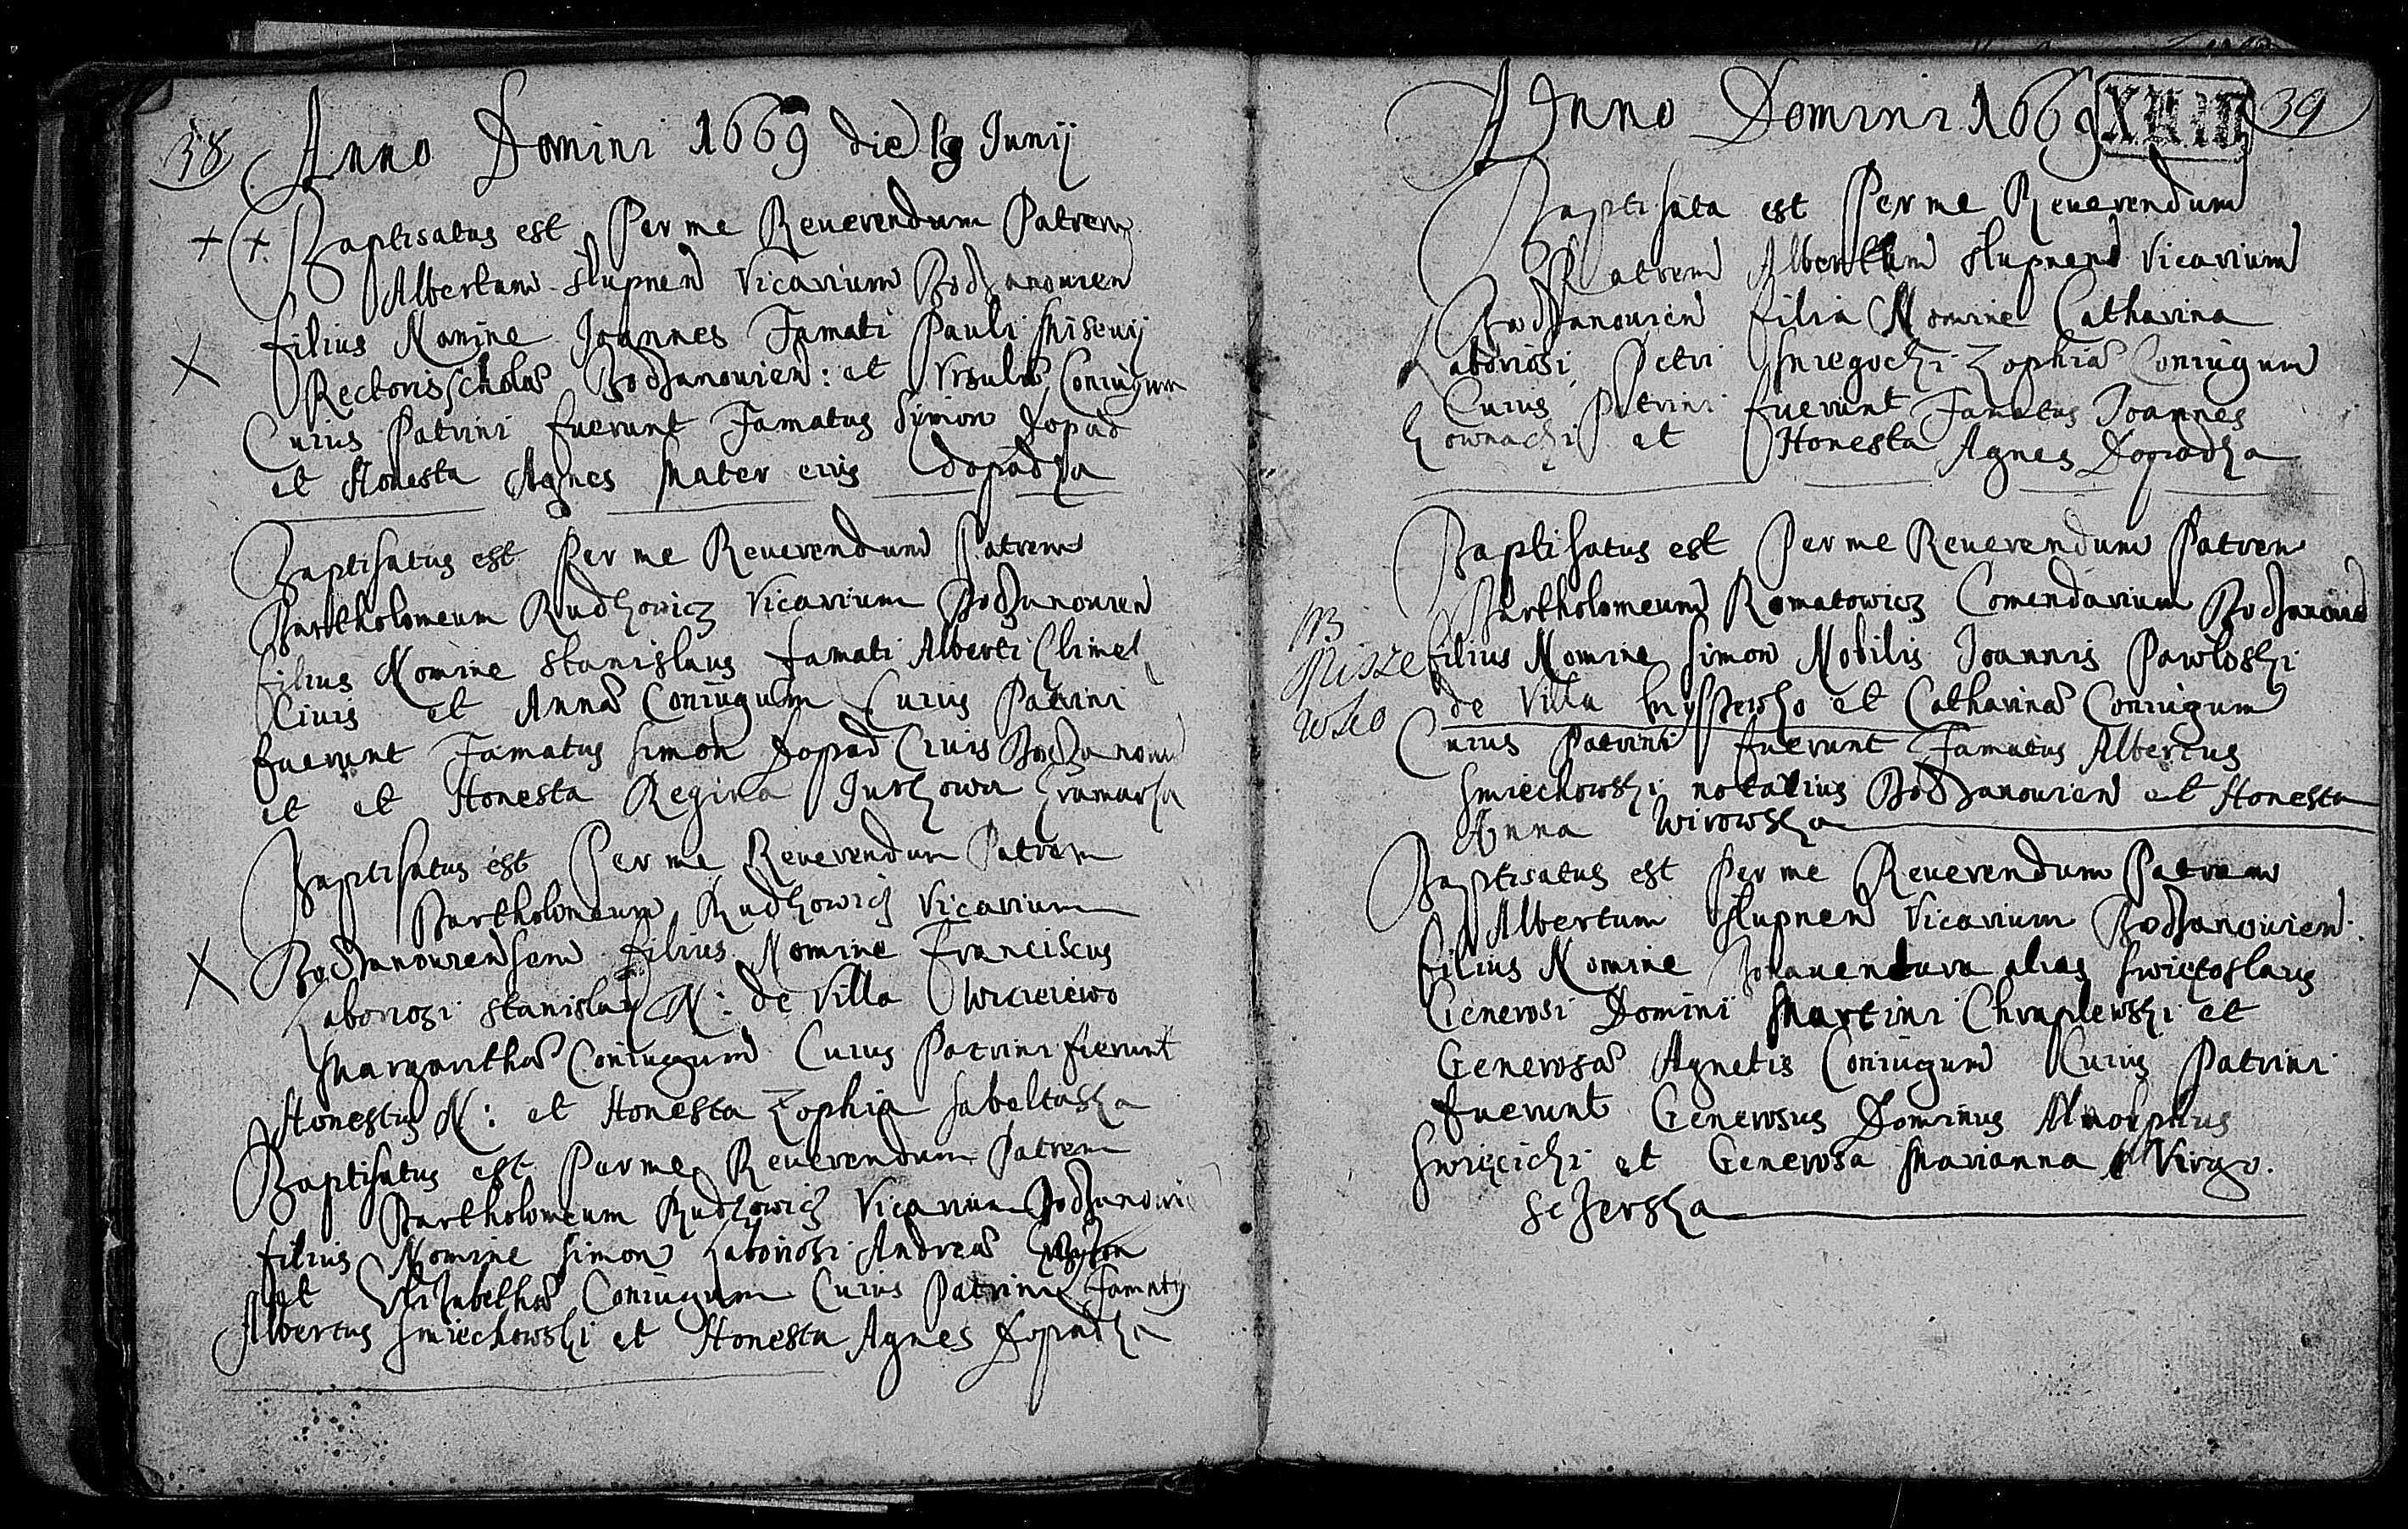 38
Anno Domini 1669 die 19 Junij
Baptisatus est Per me Reuerendum Patrem
Albertum Slupnen Vicarium Bodzanouien
filius Nomine Joannes Famati Pauli
Rectoris Scholae Bodzanouien: et Vrsulae Coniugum
Cuius Patrini fuerunt Famatus Simon Dopad
et Honesta Agnes Mater eius Dopadka
Baptisatus est Per me Reuerendum Patrem
Bartholomeum Rudkowicz Vicarium Bodzanouien
filius Nomine Stanislaus Famati Alberti Klimek
Ciuis et Annae Coniugum Cuius Patrini
fuerunt Famatus Simon Dopad Ciuis Bodzanoui
et et Honesta Regina Jurkowa Kramarka
Baptisatus est Per me Reuerendum Patrem
Bartholomeum Rudkowicz Vicarium
Bodzanouiensem filius Nomine Franciscus
Laboriosi Stanislai N: de Villa Wiciejewo
Margarithae Coniugum Cuius Patrini fuerunt
Honestus N: et Honesta Zophia Sabeltaska
Baptisatus est Per me Reuerendum Patrem
Bartholomeum Rudkowicz Vicarium Bodzanoui
filius Nomine Simon Laboriosi Andreae
et Elizabethae Coniugum Cuius Patrini Famatus
Albertus Smiechowski et Honesta Agnes Dopadka
39
Anno Domini 1669
Baptisata est Per me Reuerendum
Patrem Albertum Slupnen Vicarium
Bodzanouien filia Nomine Catharina
Laboriosi Petri Sniegocki Zophiae Coniugum
Cuius Patrini fuerunt Famatus Joannes
Kownacki et Honesta Agnes Dopadka
Baptisatus est Per me Reuerendum Patrem
Bartholomeum Romatowicz Comendarium Bodzanouie
NB
Misze
wko
filius Nomine Simon Nobilis Joannis Pawloski
de Villa Myszewko et Catharinae Coniugum
Cuius Patrini fuerunt Famatus Albertus
Smiechowski notarius Bodzanouien et Honesta
Anna Wirowska
Baptisatus est Per me Reuerendum Patrem
Albertum Slupnen Vicarium Bodzanouien.
filius Nomine Bonauentura alias Swiętoslaus
Generosi Domini Martini Chruplewski et
Generosae Agnetis Coniugum Cuius Patrini
fuerunt Generosus Dominus
Swięcicki et Generosa Marianna Virgo.